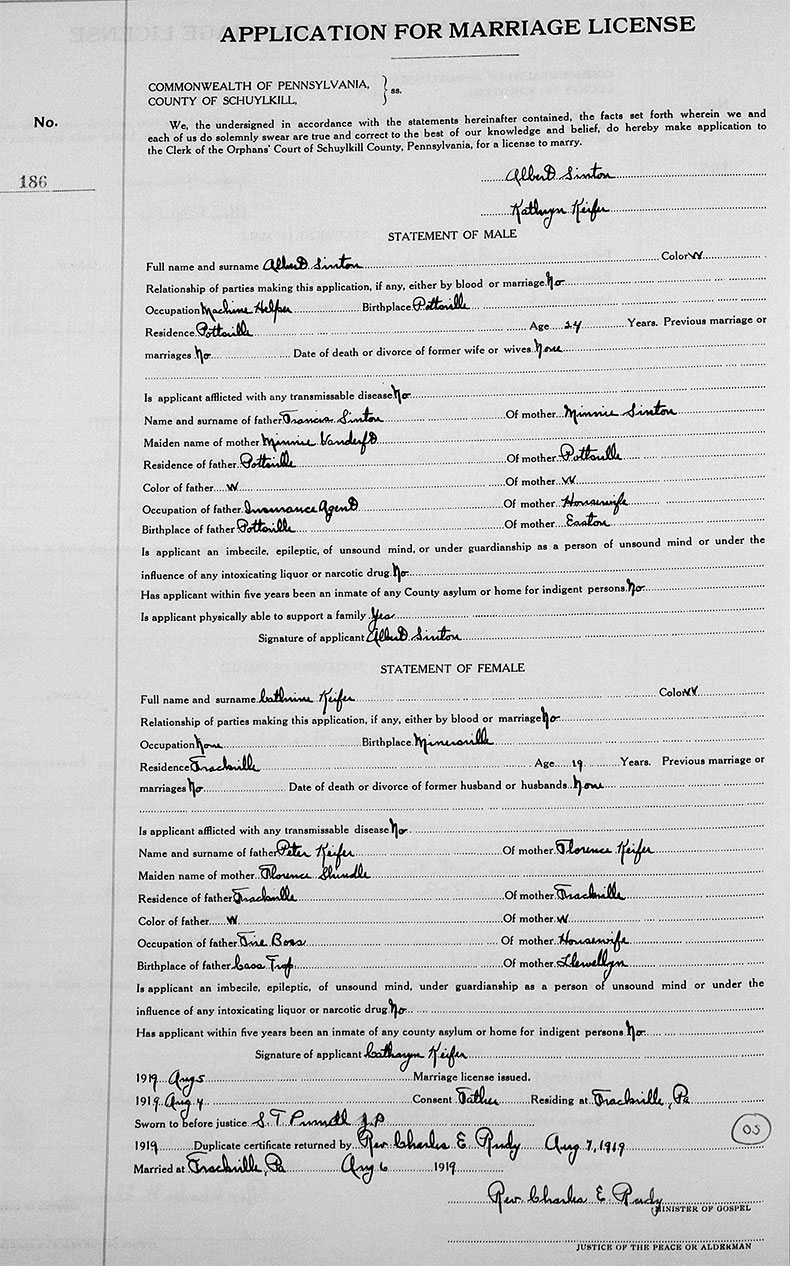 APPLICATION FOR MARRIAGE LICENSE
COMMONWEALTH OF PENNSYLVANIA,
COUNTY OF SCHUYLKILL, } ss.
No.
We, the undersigned in accordance with the statements hereinafter contained, the facts set forth wherein we and
each of us do solemnly swear are true and correct to the best of our knowledge and belief, do hereby make application to
the Clerk of the Orphans' Court of Schuylkill County, Pennsylvania, for a license to marry.
186
Albert Sinton
Kathryn Keifer
STATEMENT OF MALE
Full name and surname Albert Sinton Color W
Relationship of parties making this application, if any, either by blood or marriage No
Occupation Machine Helper Birthplace Pottsville
Residence Pottsville Age 24 Years. Previous marriage or
marriages No Date of death or divorce of former wife or wives None
Is applicant afflicted with any transmissable disease No
Name and surname of father Francis Sinton Of mother Minnie Sinton
Maiden name of mother Minnie
Residence of father Pottsville Of mother Pottsville
Color of father W Of mother W
Occupation of father Insurance Agent Of mother Housewife
Birthplace of father Pottsville Of mother Easton
Is applicant an imbecile, epileptic, of unsound mind, or under guardianship as a person of unsound mind or under the
influence of any intoxicating liquor or narcotic drug No
Has applicant within five years been an inmate of any County asylum or home for indigent persons No
Is applicant physically able to support a family Yes
Signature of applicant Albert Sinton
STATEMENT OF FEMALE
Full name and surname Cathrine Keifer Color W
Relationship of parties making this application, if any, either by blood or marriage No
Occupation None Birthplace Minersville
Residence Frackville Age 19 Years. Previous marriage or
marriages No Date of death or divorce of former husband or husbands None
Is applicant afflicted with any transmissable disease No
Name and surname of father Peter Keifer Of mother Florence Keifer
Maiden name of mother Florence Shindle
Residence of father Frackville Of mother Frackville
Color of father W Of mother W
Occupation of father Fire Boss Of mother Housewife
Birthplace of father Cass Twp Of mother Llewellyn
Is applicant an imbecile, epileptic, of unsound mind, under guardianship as a person of unsound mind or under the
influence of any intoxicating liquor or narcotic drug No
Has applicant within five years been an inmate of any county asylum or home for indigent persons No
Signature of applicant Catharyn Keifer
1919 Aug 5 Marriage license issued.
1919 Aug 4 Consent Father Residing at Frackville, Pa
Sworn to before justice S. T. J.P.
1919 Duplicate certificate returned by Rev. Charles E. Rudy Aug 7, 1919
05
Married at Frackville, Pa Aug 6 1919
Rev. Charles E. Rudy
MINISTER OF GOSPEL
JUSTICE OF THE PEACE OR ALDERMAN